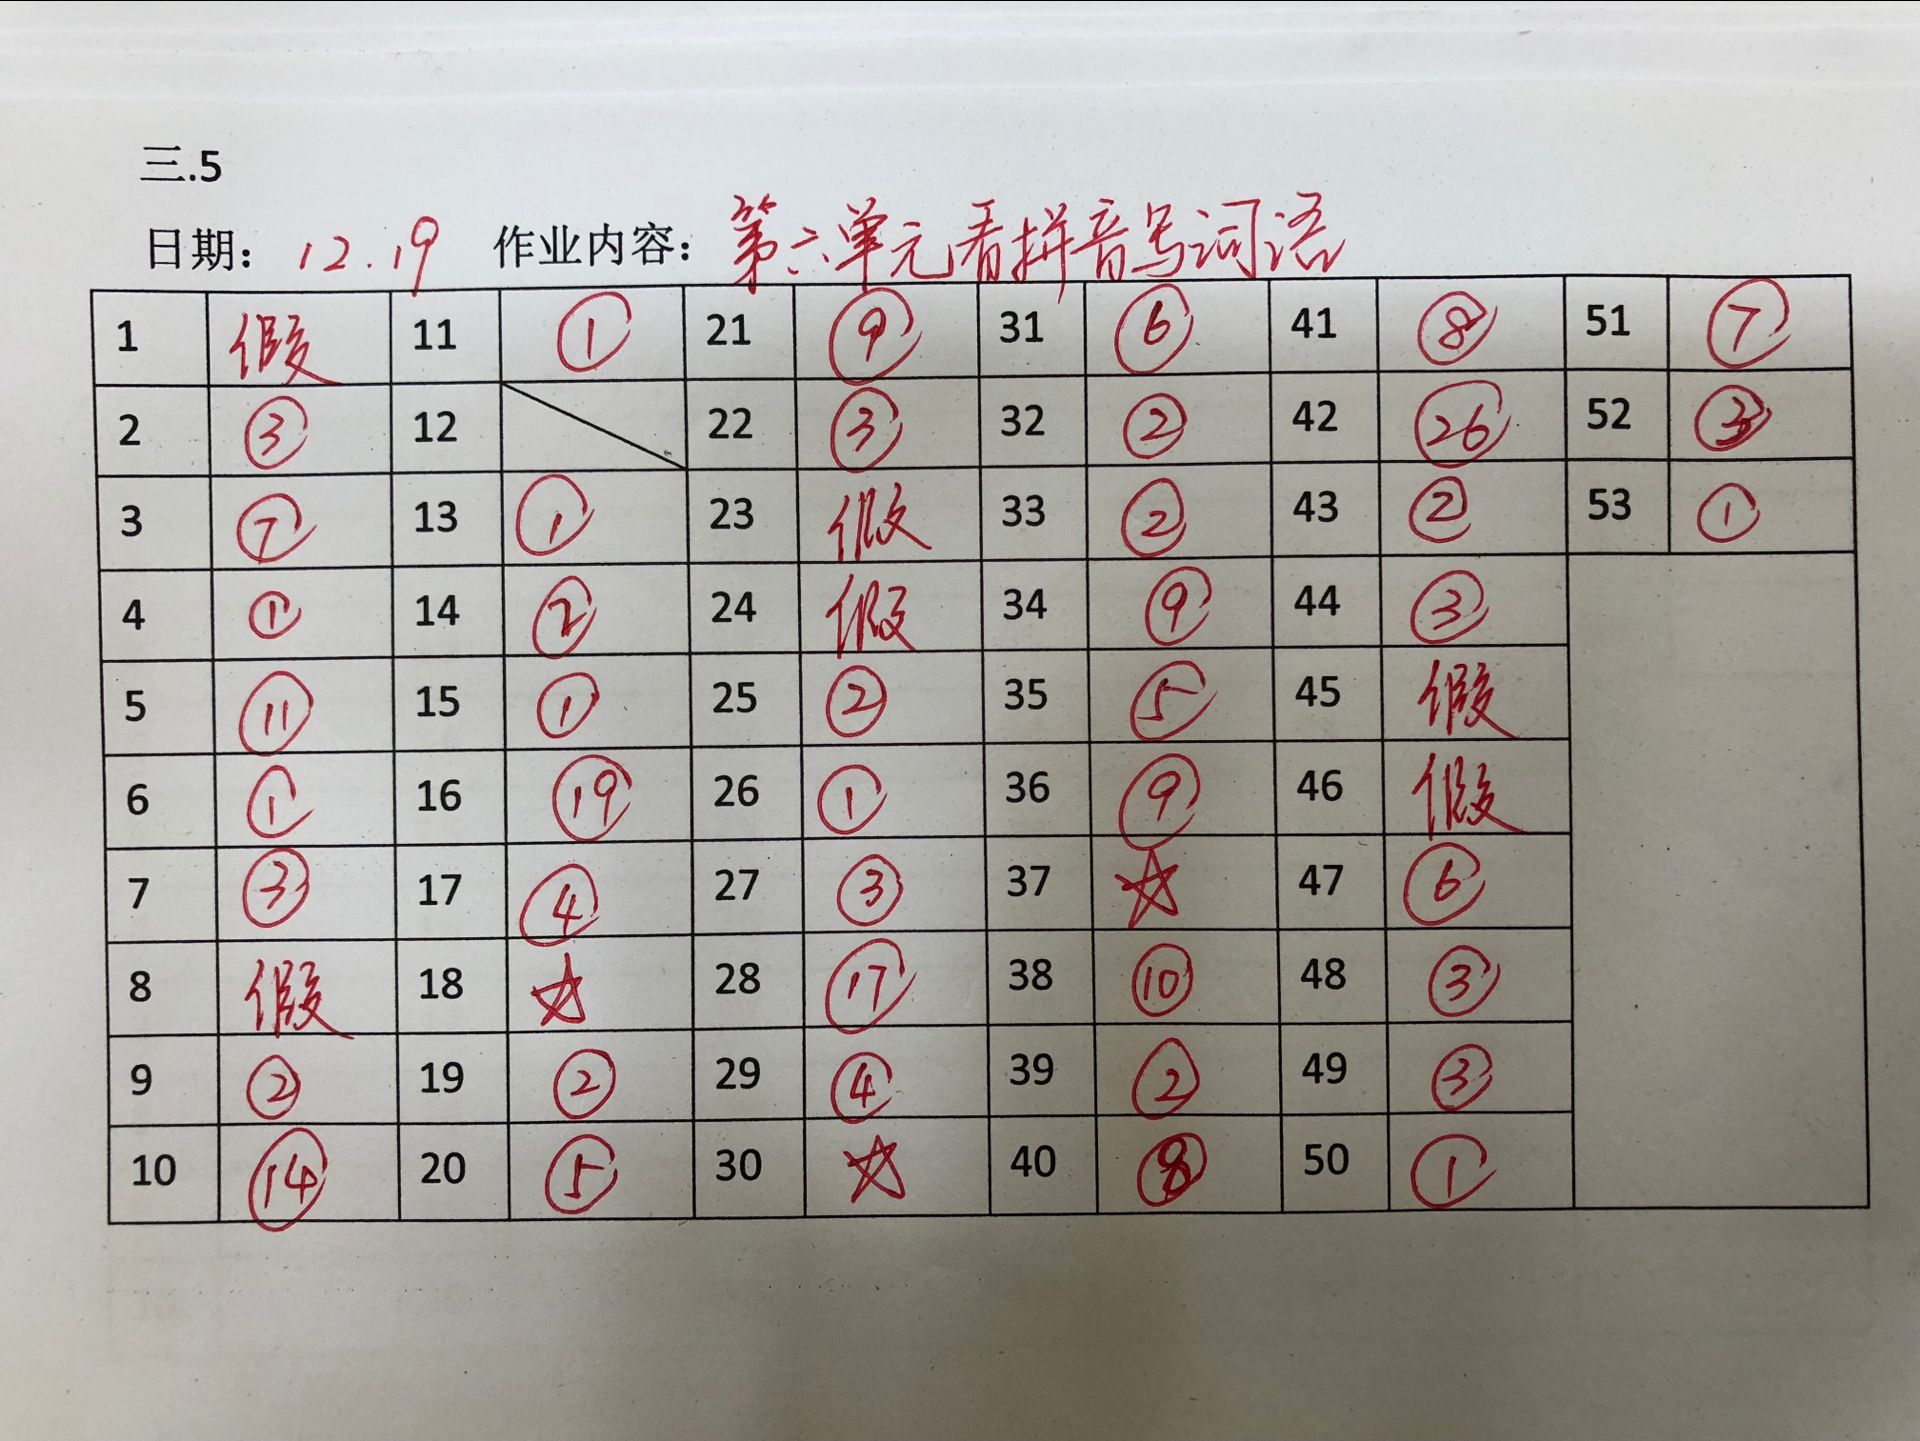 三.5
日期： 12.19 作业内容： 第六单元看拼音写词语
1 假 11 ① 21 ⑨ 31 ⑥ 41 ⑧ 51 ⑦
2 ③ 12 22 ③ 32 ② 42 ㉖ 52 ③
3 ⑦ 13 ① 23 假 33 ② 43 ② 53 ①
4 ① 14 ② 24 假 34 ⑨ 44 ③
5 ⑪ 15 ① 25 ② 35 ⑤ 45 假
6 ① 16 ⑲ 26 ① 36 ⑨ 46 假
7 ③ 17 ④ 27 ③ 37 ☆ 47 ⑥
8 假 18 ☆ 28 ⑰ 38 ⑩ 48 ③
9 ② 19 ② 29 ④ 39 ② 49 ③
10 ⑭ 20 ⑤ 30 ☆ 40 ⑧ 50 ①